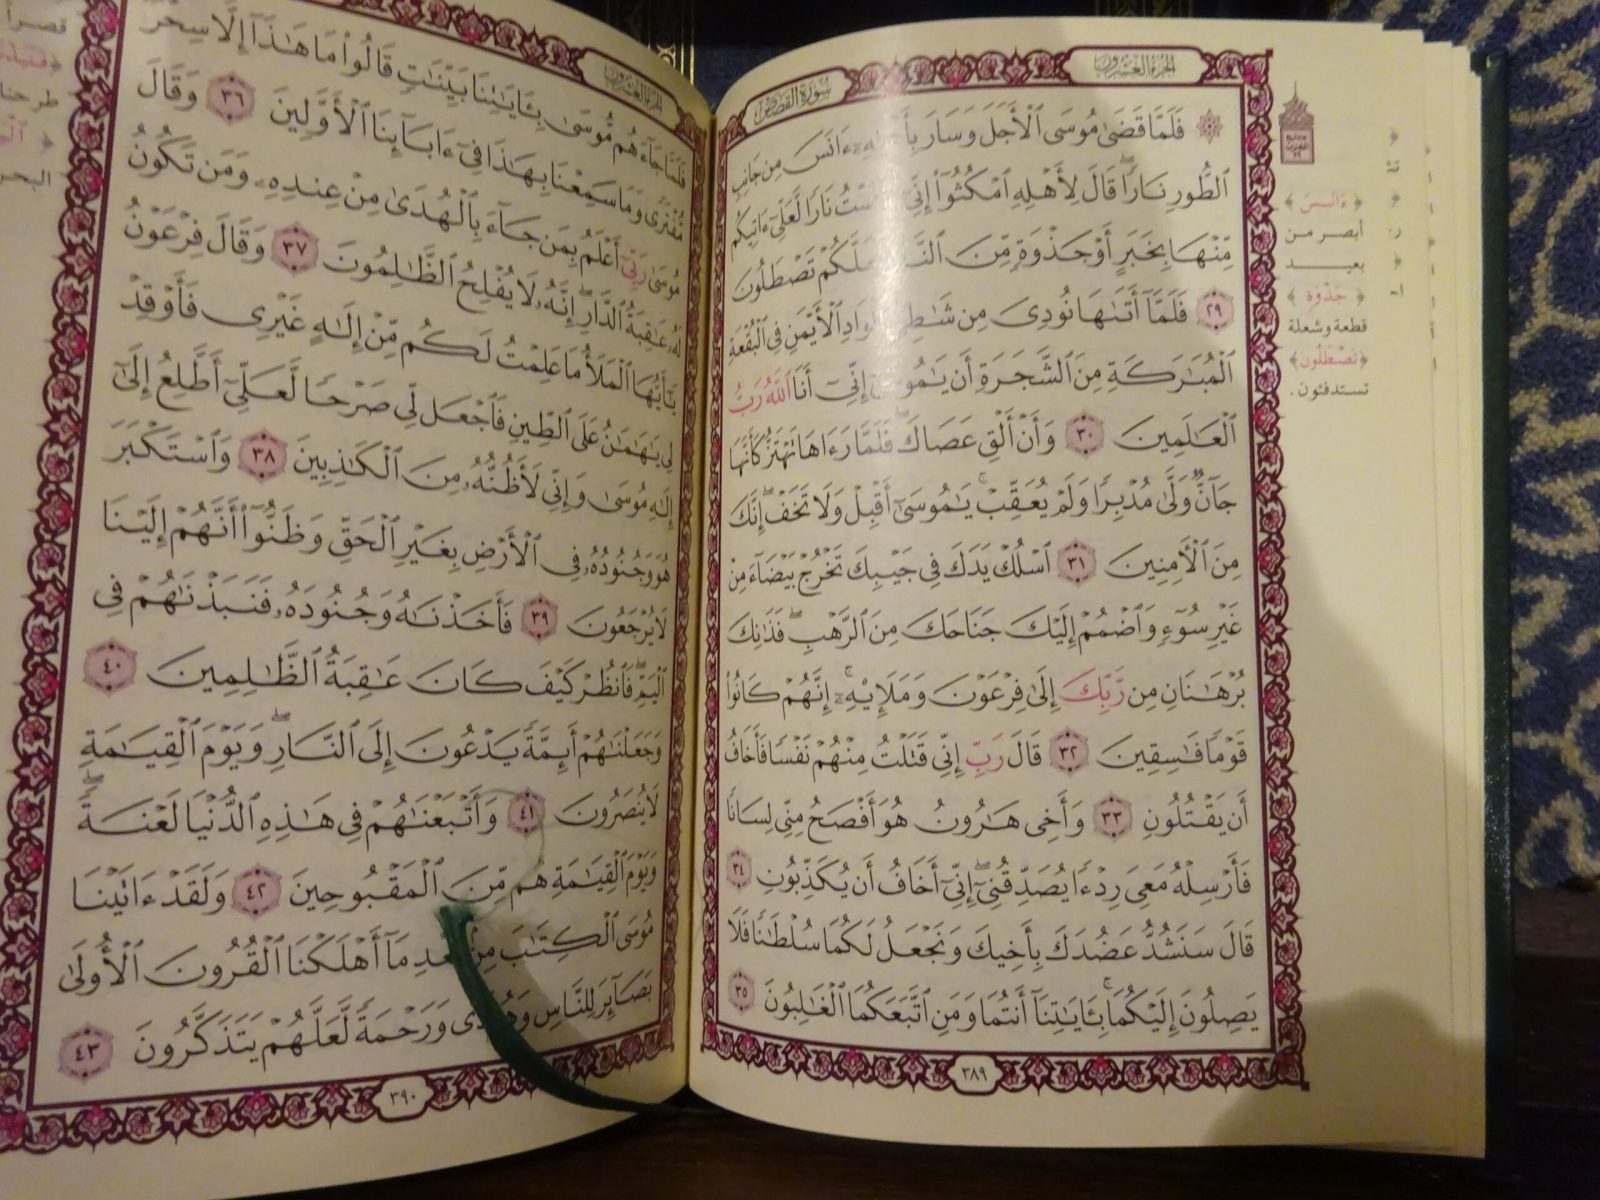 سورة القصص
الجزء العشرون
۞ فَلَمَّا قَضَىٰ مُوسَى ٱلْأَجَلَ وَسَارَ بِأَهْلِهِۦٓ ءَانَسَ مِن جَانِبِ
ٱلطُّورِ نَارًا قَالَ لِأَهْلِهِ ٱمْكُثُوٓا۟ إِنِّىٓ ءَانَسْتُ نَارًا لَّعَلِّىٓ ءَاتِيكُم
مِّنْهَا بِخَبَرٍ أَوْ جَذْوَةٍ مِّنَ ٱلنَّارِ لَعَلَّكُمْ تَصْطَلُونَ
٢٩ فَلَمَّآ أَتَىٰهَا نُودِىَ مِن شَٰطِئِ ٱلْوَادِ ٱلْأَيْمَنِ فِى ٱلْبُقْعَةِ
ٱلْمُبَٰرَكَةِ مِنَ ٱلشَّجَرَةِ أَن يَٰمُوسَىٰٓ إِنِّىٓ أَنَا ٱللَّهُ رَبُّ
ٱلْعَٰلَمِينَ ٣٠ وَأَنْ أَلْقِ عَصَاكَ ۖ فَلَمَّا رَءَاهَا تَهْتَزُّ كَأَنَّهَا
جَآنٌّ وَلَّىٰ مُدْبِرًا وَلَمْ يُعَقِّبْ ۚ يَٰمُوسَىٰٓ أَقْبِلْ وَلَا تَخَفْ ۖ إِنَّكَ
مِنَ ٱلْـَٔامِنِينَ ٣١ ٱسْلُكْ يَدَكَ فِى جَيْبِكَ تَخْرُجْ بَيْضَآءَ مِنْ
غَيْرِ سُوٓءٍ وَٱضْمُمْ إِلَيْكَ جَنَاحَكَ مِنَ ٱلرَّهْبِ ۖ فَذَٰنِكَ
بُرْهَٰنَانِ مِن رَّبِّكَ إِلَىٰ فِرْعَوْنَ وَمَلَإِيْهِۦٓ ۚ إِنَّهُمْ كَانُوا۟
قَوْمًا فَٰسِقِينَ ٣٢ قَالَ رَبِّ إِنِّى قَتَلْتُ مِنْهُمْ نَفْسًا فَأَخَافُ
أَن يَقْتُلُونِ ٣٣ وَأَخِى هَٰرُونُ هُوَ أَفْصَحُ مِنِّى لِسَانًا
فَأَرْسِلْهُ مَعِىَ رِدْءًا يُصَدِّقُنِىٓ ۖ إِنِّىٓ أَخَافُ أَن يُكَذِّبُونِ ٣٤
قَالَ سَنَشُدُّ عَضُدَكَ بِأَخِيكَ وَنَجْعَلُ لَكُمَا سُلْطَٰنًا فَلَا
يَصِلُونَ إِلَيْكُمَا ۚ بِـَٔايَٰتِنَآ أَنتُمَا وَمَنِ ٱتَّبَعَكُمَا ٱلْغَٰلِبُونَ ٣٥
٣٨٩
﴿ءانس﴾
أبصر من
بعيد
﴿جذوة﴾
قطعة وشعلة
﴿تصطلون﴾
تستدفئون.
الجزء العشرون
فَلَمَّا جَآءَهُم مُّوسَىٰ بِـَٔايَٰتِنَا بَيِّنَٰتٍ قَالُوا۟ مَا هَٰذَآ إِلَّا سِحْرٌ
مُّفْتَرًى وَمَا سَمِعْنَا بِهَٰذَا فِىٓ ءَابَآئِنَا ٱلْأَوَّلِينَ ٣٦ وَقَالَ
مُوسَىٰ رَبِّىٓ أَعْلَمُ بِمَن جَآءَ بِٱلْهُدَىٰ مِنْ عِندِهِۦ وَمَن تَكُونُ
لَهُۥ عَٰقِبَةُ ٱلدَّارِ ۖ إِنَّهُۥ لَا يُفْلِحُ ٱلظَّٰلِمُونَ ٣٧ وَقَالَ فِرْعَوْنُ
يَٰٓأَيُّهَا ٱلْمَلَأُ مَا عَلِمْتُ لَكُم مِّنْ إِلَٰهٍ غَيْرِى فَأَوْقِدْ
لِى يَٰهَٰمَٰنُ عَلَى ٱلطِّينِ فَٱجْعَل لِّى صَرْحًا لَّعَلِّىٓ أَطَّلِعُ إِلَىٰٓ
إِلَٰهِ مُوسَىٰ وَإِنِّى لَأَظُنُّهُۥ مِنَ ٱلْكَٰذِبِينَ ٣٨ وَٱسْتَكْبَرَ
هُوَ وَجُنُودُهُۥ فِى ٱلْأَرْضِ بِغَيْرِ ٱلْحَقِّ وَظَنُّوٓا۟ أَنَّهُمْ إِلَيْنَا
لَا يُرْجَعُونَ ٣٩ فَأَخَذْنَٰهُ وَجُنُودَهُۥ فَنَبَذْنَٰهُمْ فِى
ٱلْيَمِّ ۖ فَٱنظُرْ كَيْفَ كَانَ عَٰقِبَةُ ٱلظَّٰلِمِينَ ٤٠
وَجَعَلْنَٰهُمْ أَئِمَّةً يَدْعُونَ إِلَى ٱلنَّارِ ۖ وَيَوْمَ ٱلْقِيَٰمَةِ
لَا يُنصَرُونَ ٤١ وَأَتْبَعْنَٰهُمْ فِى هَٰذِهِ ٱلدُّنْيَا لَعْنَةً ۖ
وَيَوْمَ ٱلْقِيَٰمَةِ هُم مِّنَ ٱلْمَقْبُوحِينَ ٤٢ وَلَقَدْ ءَاتَيْنَا
مُوسَى ٱلْكِتَٰبَ مِنۢ بَعْدِ مَآ أَهْلَكْنَا ٱلْقُرُونَ ٱلْأُولَىٰ
بَصَآئِرَ لِلنَّاسِ وَهُدًى وَرَحْمَةً لَّعَلَّهُمْ يَتَذَكَّرُونَ ٤٣
٣٩٠
قصراً
البحر